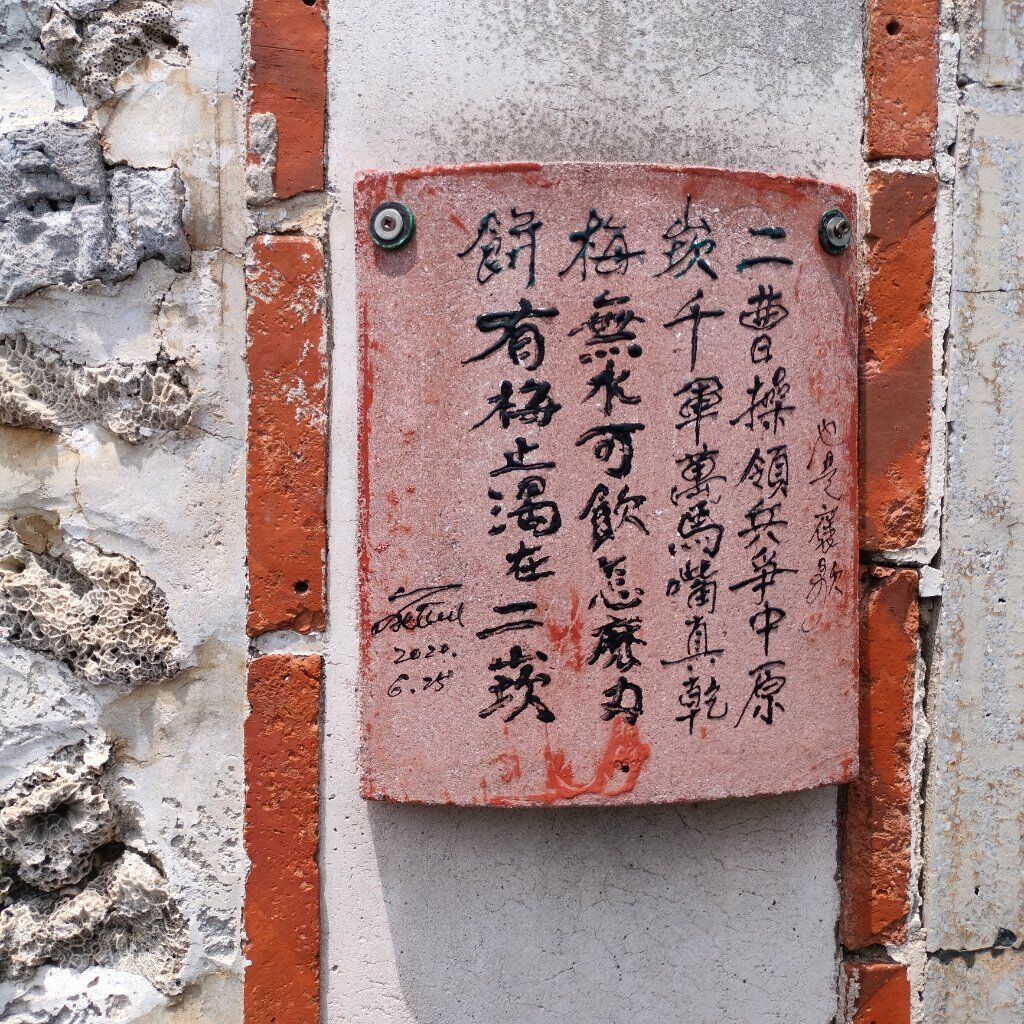 也是褒歌
二崁梅餅
曹操領兵爭中原
千軍萬馬嘴真乾
無水可飲怎麼办
有梅止渴在二崁
2020.
6.25